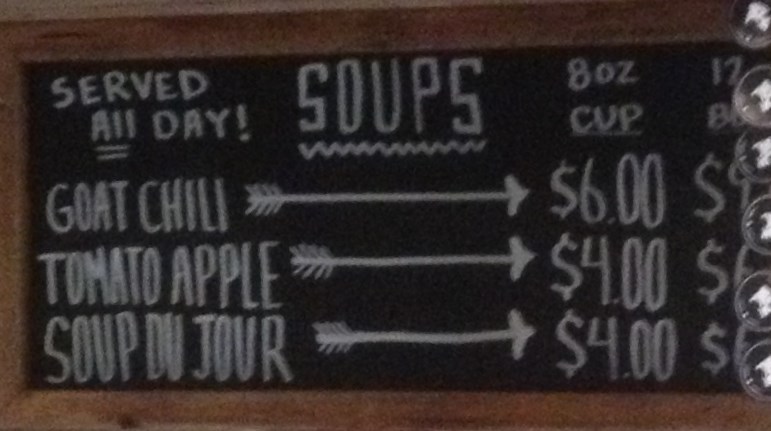 SERVED
All DAY!
SOUPS
8oz
CUP
12
GOAT CHILI $6.00 $9
TOMATO APPLE $4.00 $
SOUP DU JOUR $4.00 $